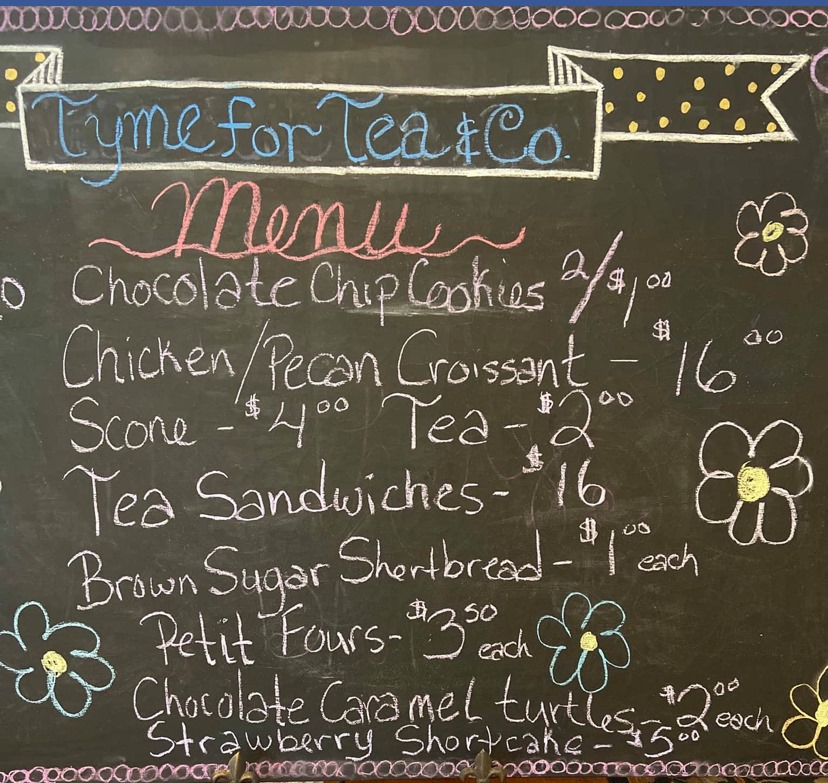 Tyme for Tea & Co.
Menu
Chocolate Chip Cookies 2/$1.00
Chicken/Pecan Croissant - $16.00
Scone - $4.00 Tea - $2.00
Tea Sandwiches - $16
Brown Sugar Shortbread - $1.00 each
Petit Fours - $3.50 each
Chocolate Caramel turtles - $2.00 each
Strawberry Shortcake - $5.00